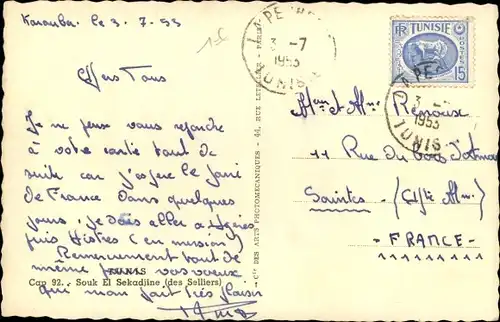 Karouba. le 3. 7. 53
Chers Tous
Je ne peux vous reponde
à votre carte tout de
suite car j'espere le faire
de France dans quelques
jours. je dois aller a Hyères
puis Histres (en mission)
Remerciement tout de
même pour vos voeux
qui m'on fait très plaisir
TUNIS
Cap 92. - Souk El Sekadjine (des Selliers)
Cie DES ARTS PHOTOMECANIQUES - 44, RUE LETELLIER - PARIS
LA PE
3 -7
1953
TUNIS
RF TUNISIE
15
LA PE
3 -
1953
TUNIS
Mon. et Mme
11 Rue du
Saintes - (Chte Mme)
- FRANCE -